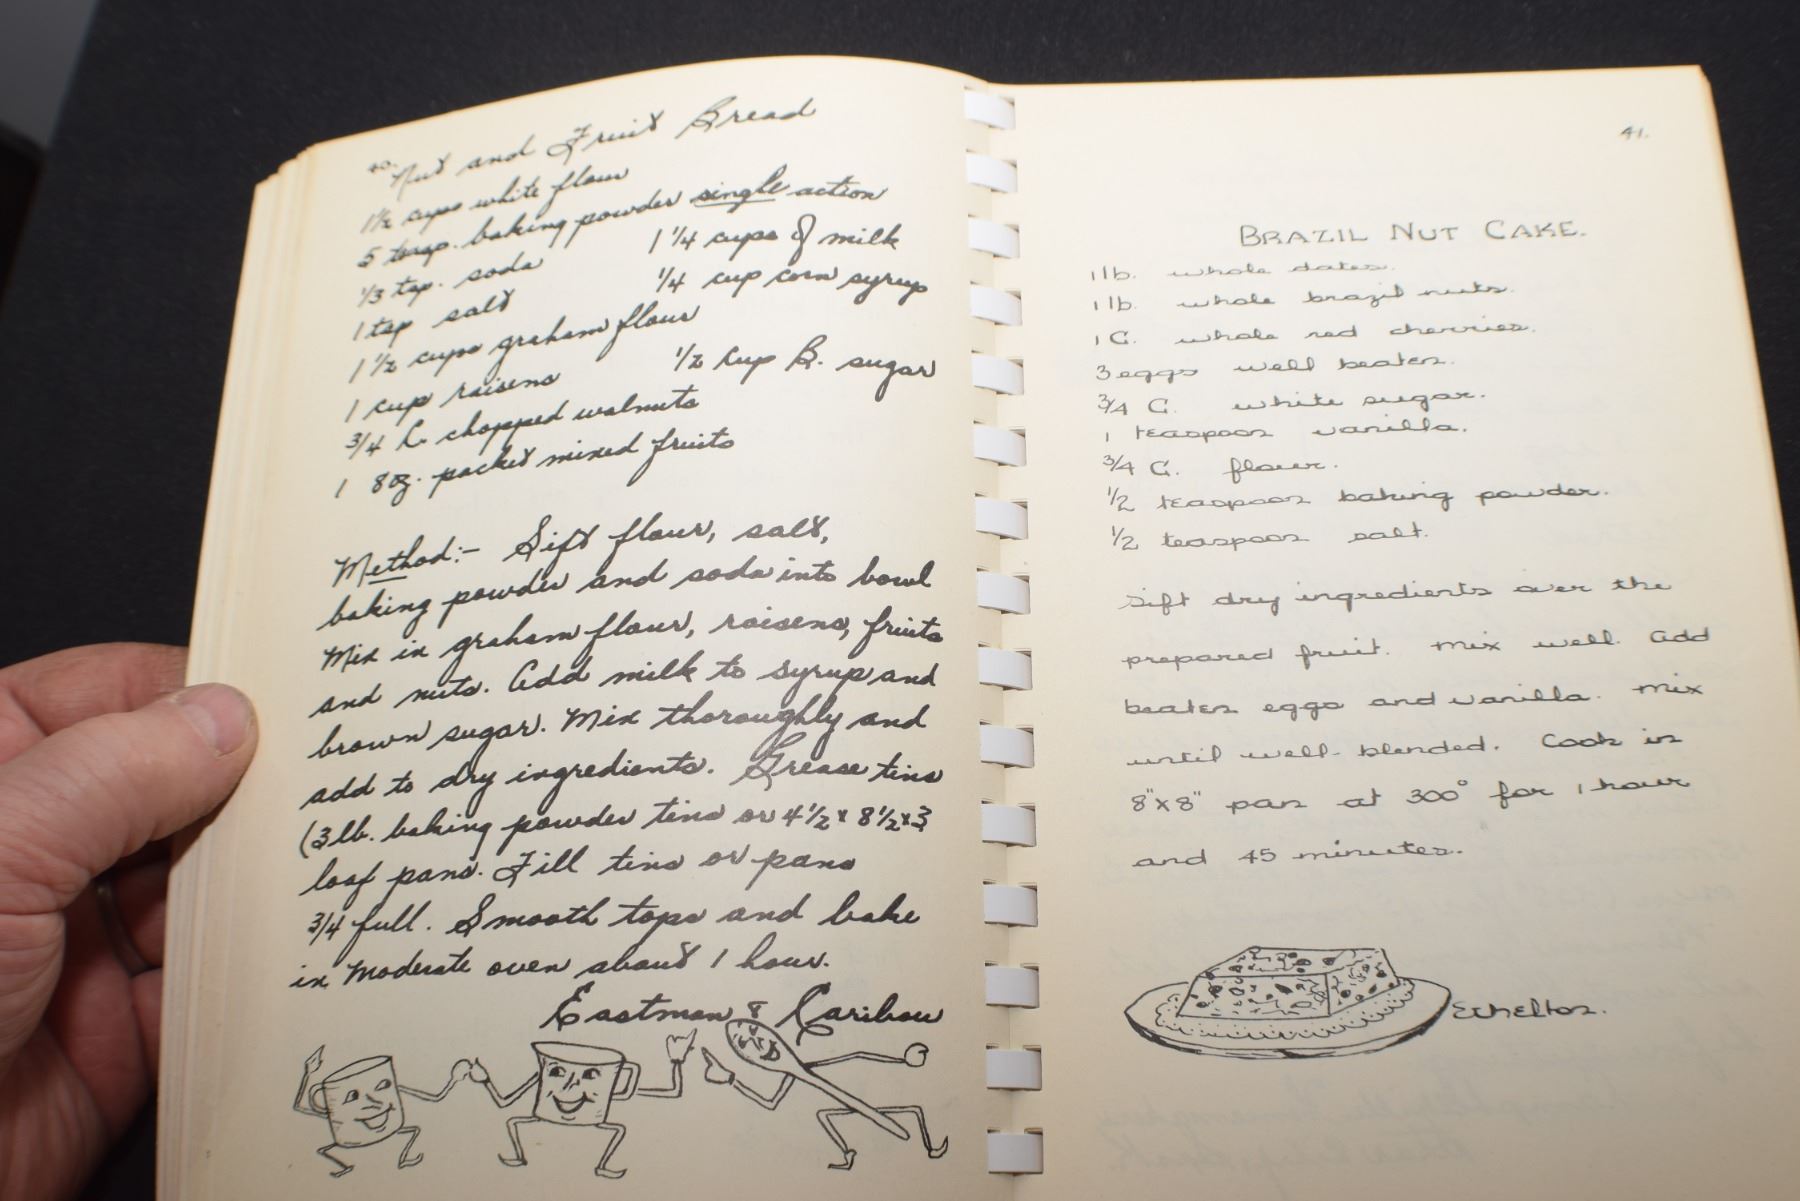 40.
Nut and Fruit Bread
1½ cups white flour
5 teasp. baking powder single action
⅓ tsp. soda
1¼ cups of milk
1 tsp salt
¼ cup corn syrup
1½ cups graham flour
1 cup raisens
½ Cup B. sugar
3/4 C. chopped walnuts
1 8oz. packet mixed fruits
Method:- Sift flour, salt,
baking powder and soda into bowl
Mix in graham flour, raisens, fruits
and nuts. Add milk to syrup and
brown sugar. Mix thoroughly and
add to dry ingredients. Grease tins
(3 lb. baking powder tins or 4½ x 8½ x 3
loaf pans. Fill tins or pans
3/4 full. Smooth tops and bake
in Moderate oven about 1 hour.
Eastman & Caribou
41.
BRAZIL NUT CAKE.
1 lb. whole dates.
1 lb. whole brazil nuts.
1 C. whole red cherries.
3 eggs well beaten.
3/4 C. white sugar.
1 teaspoon vanilla.
3/4 C. flour.
1/2 teaspoon baking powder.
1/2 teaspoon salt.
Sift dry ingredients over the
prepared fruit. Mix well. Add
beaten eggs and vanilla. Mix
until well-blended. Cook in
8"x8" pan at 300° for 1 hour
and 45 minutes.
Ethelton.